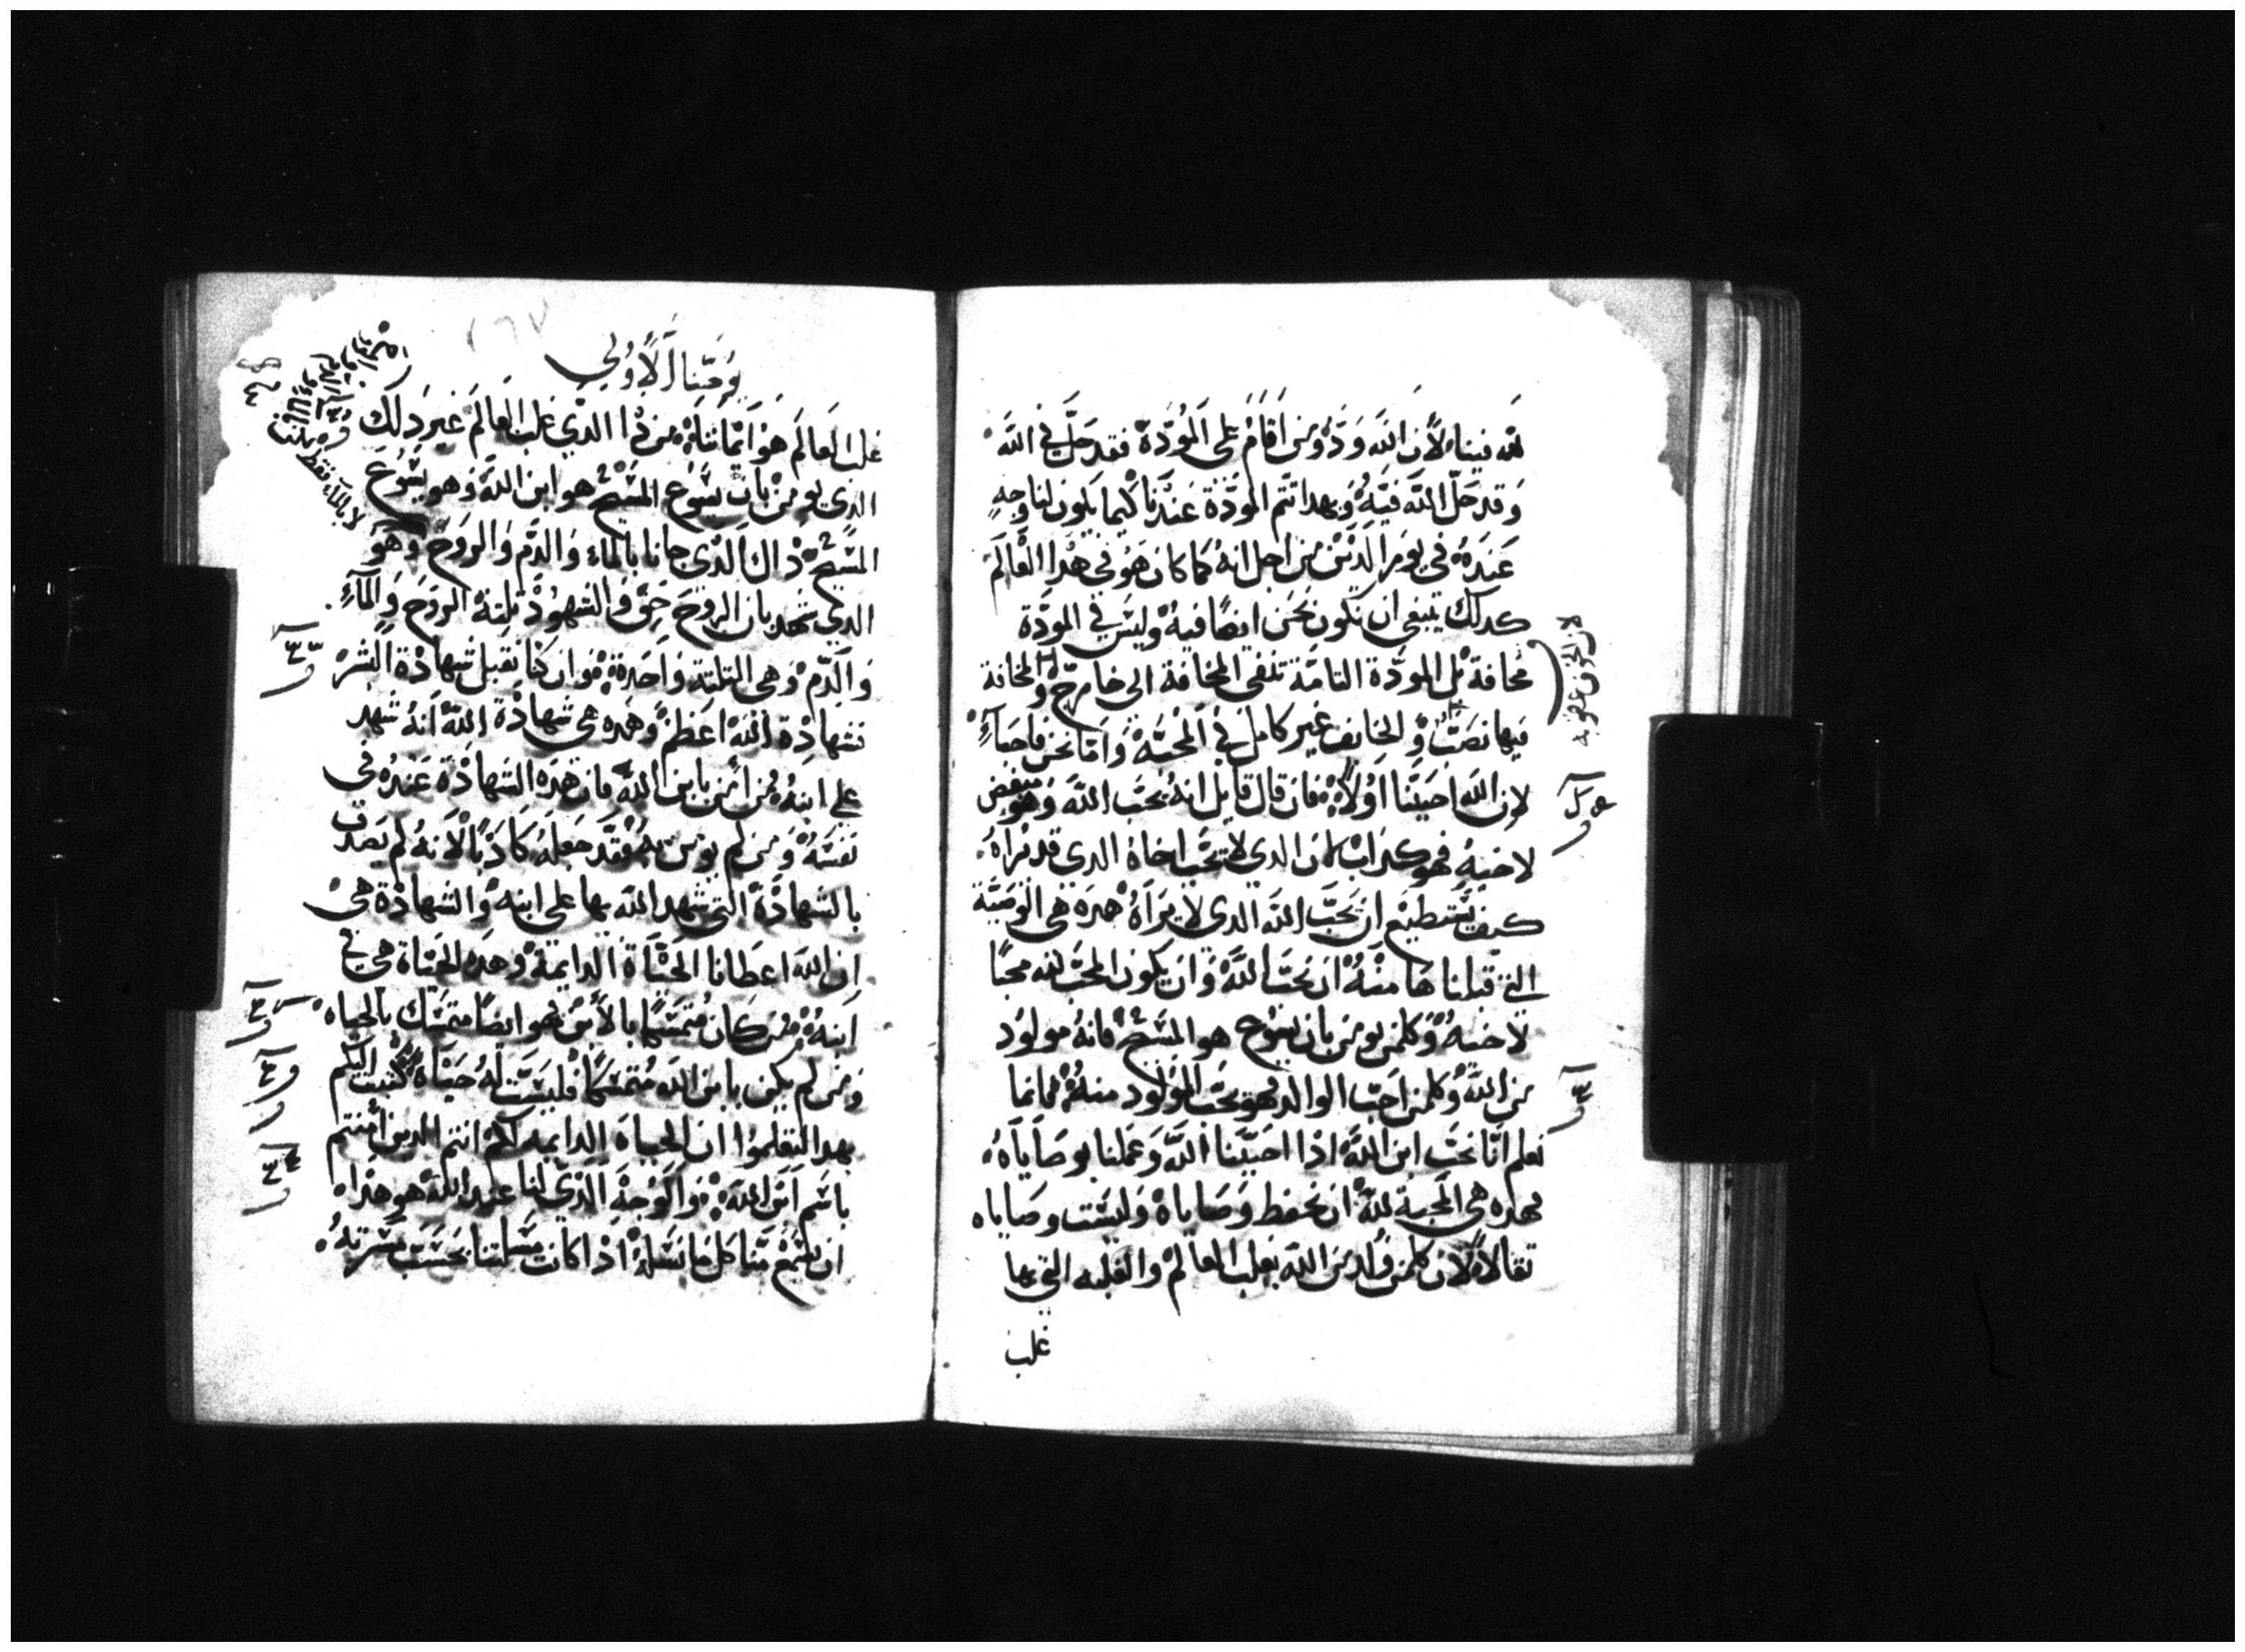 لله فينا لان الله ودٌ ومن اقام على المودة فقد حل في الله
وقد حل الله فيه وبهدا تتم المودة عندنا كيما يكون لنا وجه
عنده في يوم الدين من اجل انه كما كان هو في هدا العالم
كدلك ينبغي ان نكون نحن ايضا فيه وليس في المودة
مخافة بل المودة التامة تنفي المخافة الى خارج والمخافة
فيها نصب والخايف غير كامل في المحبة واما نحن فاحباء
لان الله احبنا اولا فان قال قايل انه يحب الله وهو مبغض
لاخيه فهو كداب لان الدي لا يحب اخاه الدي قد يراه
كيف يستطيع ان يحب الله الدي لا يراه هده هي الوصية
التي قبلناها منه ان نحب الله وان يكون المحب لله محبا
لاخيه وكلمن يومن بان يسوع هو المسيح فانه مولود
من الله وكلمن احب الوالد فهو يحب المولود منه فانما
نعلم انا نحب ابن الله اذا احببنا الله وعملنا بوصاياه
فهده هي المحبة لله ان نحفظ وصاياه وليست وصاياه
ثقالا لان كلمن ولد من الله يغلب العالم والغلبه التي بها
غلب
لان الخوف عقوبه
يوحنا الاولي
غلب العالم هو ايماننا من ذا الدي غلب العالم غير دلك
الدي يومن بان يسوع المسيح هو ابن الله وهو يسوع
المسيح ذاك الدي جانا بالماء والدم والروح وهو
الدي شهد بان الروح حق والشهود ثلثة الروح والماء
والدم وهي الثلثة واحدة وان كنا نقبل شهادة البشر
فشهادة الله اعظم وهده هي شهادة الله انه شهد
على ابنه من امن بابن الله فان هده الشهادة عنده في
نفسه ومن لم يومن به فقد جعله كاذبا لانه لم يصدق
بالشهادة التي شهد الله بها على ابنه والشهادة هي
ان الله اعطانا الحياة الدايمة وهده الحياة هي في
ابنه من كان متمسكا بالابن فهو ايضا متمسك بالحياه
ومن لم يكن بابن الله متمسكا فليست له حياة كتبت اليكم
بهدا لتعلموا ان الحياه الدايمه لكم انتم الدين امنتم
باسم ابن الله والوجه الدي لنا عند الله هو هدا
ان يسمع منا كل ما نسله اذا كانت مسلتنا بحسب مسرته
لا بالماء فقط